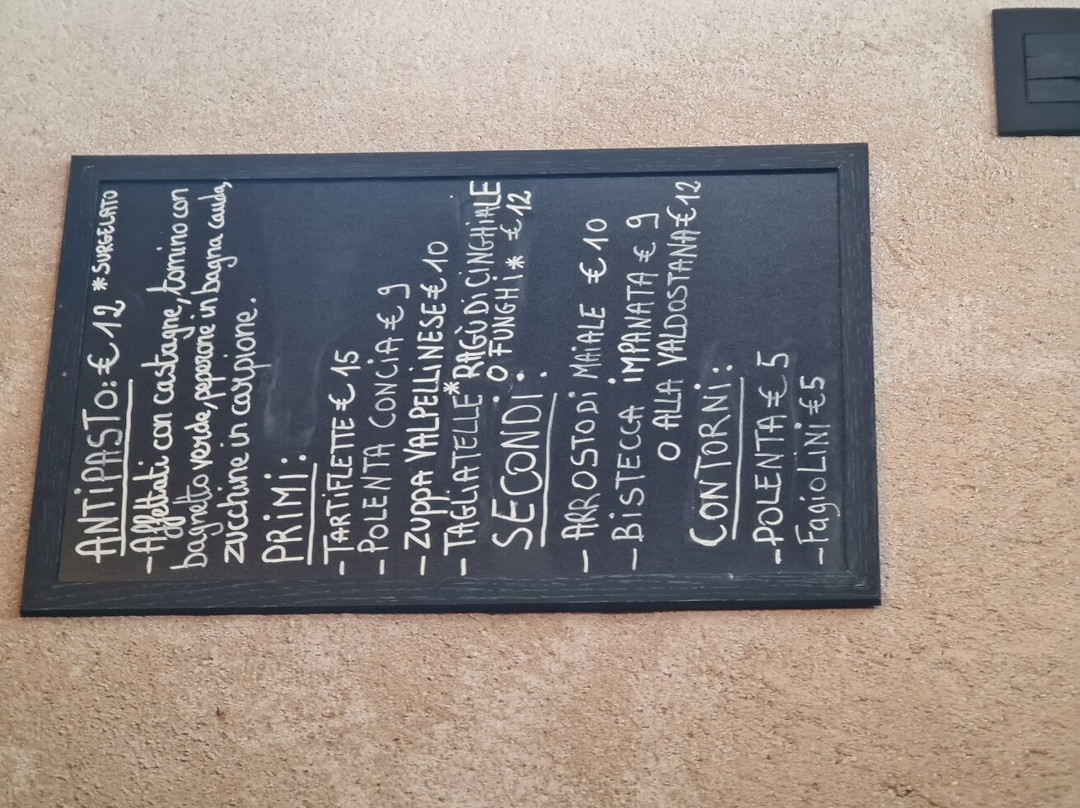 ANTIPASTO: € 12 *SURGELATO
- Affettati con castagne, tomino con
bagnetto verde, peperone in bagna cauda,
zucchine in carpione.
PRIMI:
- TARTIFLETTE € 15
- POLENTA CONCIA € 9
- ZUPPA VALPELLINESE € 10
- TAGLIATELLE* RAGÙ DI CINGHIALE
O FUNGHI* € 12
SECONDI:
- ARROSTO DI MAIALE € 10
- BISTECCA IMPANATA € 9
O ALLA VALDOSTANA € 12
CONTORNI:
- POLENTA € 5
- FagioLiNi € 5